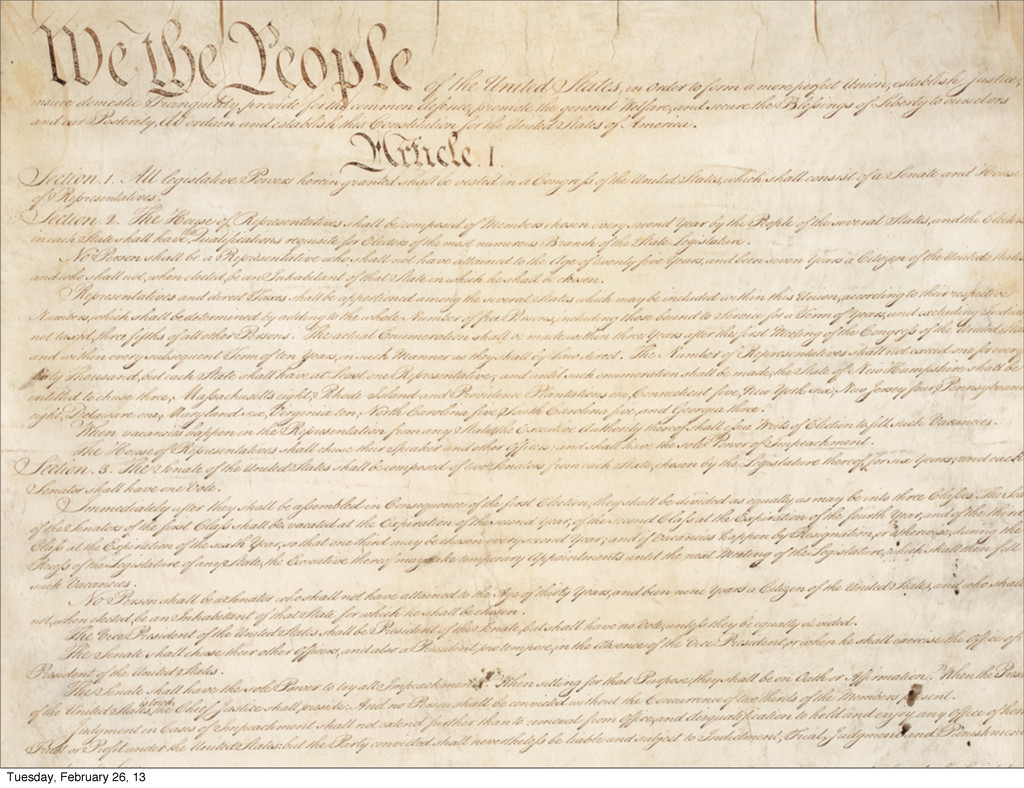 We the People of the United States, in Order to form a more perfect Union, establish Justice,
insure domestic Tranquility, provide for the common defence, promote the general Welfare, and secure the Blessings of Liberty to ourselves
and our Posterity, do ordain and establish this Constitution for the United States of America.
Article. I.
Section. 1. All legislative Powers herein granted shall be vested in a Congress of the United States, which shall consist of a Senate and House
of Representatives.
Section. 2. The House of Representatives shall be composed of Members chosen every second Year by the People of the several States, and the Electors
in each State shall have the Qualifications requisite for Electors of the most numerous Branch of the State Legislature.
No Person shall be a Representative who shall not have attained to the Age of twenty five Years, and been seven Years a Citizen of the United States,
and who shall not, when elected, be an Inhabitant of that State in which he shall be chosen.
Representatives and direct Taxes shall be apportioned among the several States which may be included within this Union, according to their respective
Numbers, which shall be determined by adding to the whole Number of free Persons, including those bound to Service for a Term of Years, and excluding Indians
not taxed, three fifths of all other Persons. The actual Enumeration shall be made within three Years after the first Meeting of the Congress of the United States,
and within every subsequent Term of ten Years, in such Manner as they shall by Law direct. The Number of Representatives shall not exceed one for every
thirty Thousand, but each State shall have at Least one Representative; and until such enumeration shall be made, the State of New Hampshire shall be
entitled to chuse three, Massachusetts eight, Rhode-Island and Providence Plantations one, Connecticut five, New-York six, New Jersey four, Pennsylvania
eight, Delaware one, Maryland six, Virginia ten, North Carolina five, South Carolina five, and Georgia three.
When vacancies happen in the Representation from any State, the Executive Authority thereof shall issue Writs of Election to fill such Vacancies.
The House of Representatives shall chuse their Speaker and other Officers; and shall have the sole Power of Impeachment.
Section. 3. The Senate of the United States shall be composed of two Senators from each State, chosen by the Legislature thereof, for six Years; and each
Senator shall have one Vote.
Immediately after they shall be assembled in Consequence of the first Election, they shall be divided as equally as may be into three Classes. The Seats
of the Senators of the first Class shall be vacated at the Expiration of the second Year, of the second Class at the Expiration of the fourth Year, and of the third
Class at the Expiration of the sixth Year, so that one third may be chosen every second Year; and if Vacancies happen by Resignation, or otherwise, during the
Recess of the Legislature of any State, the Executive thereof may make temporary Appointments until the next Meeting of the Legislature, which shall then fill
such Vacancies.
No Person shall be a Senator who shall not have attained to the Age of thirty Years, and been nine Years a Citizen of the United States, and who shall
not, when elected, be an Inhabitant of that State for which he shall be chosen.
The Vice President of the United States shall be President of the Senate, but shall have no Vote, unless they be equally divided.
The Senate shall chuse their other Officers, and also a President pro tempore, in the Absence of the Vice President, or when he shall exercise the Office of
President of the United States.
The Senate shall have the sole Power to try all Impeachments. When sitting for that Purpose, they shall be on Oath or Affirmation. When the President
of the United States is tried, the Chief Justice shall preside: And no Person shall be convicted without the Concurrence of two thirds of the Members present.
Judgment in Cases of Impeachment shall not extend further than to removal from Office, and disqualification to hold and enjoy any Office of honor,
Trust or Profit under the United States: but the Party convicted shall nevertheless be liable and subject to Indictment, Trial, Judgment and Punishment,
Tuesday, February 26, 13